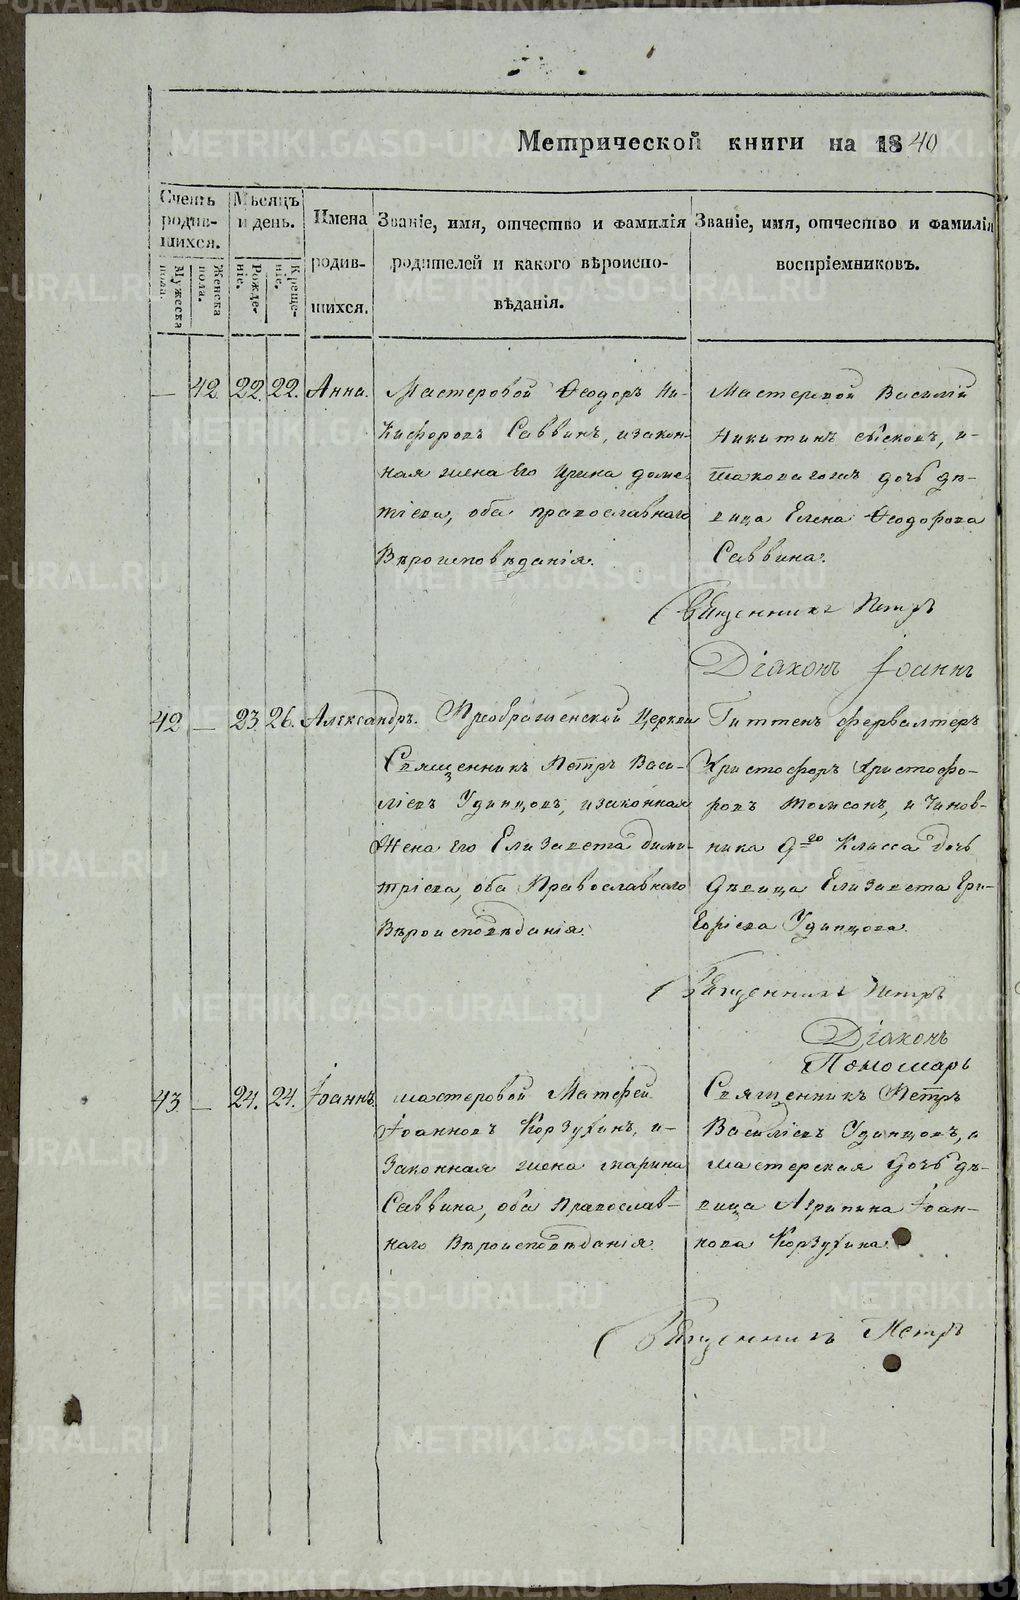 Метрической книги на 1840
Счетъ родившихся.
Мѣсяцъ и день.
Имена родившихся.
Званіе, имя, отчество и фамилія родителей и какого вѣроисповѣданія.
Званіе, имя, отчество и фамилія воспріемниковъ.
Мужеска пола.
Женска пола.
Рожденіе.
Крещеніе.
— 42. 22. 22. Анна.
Мастеровой Ѳеодоръ Ни-
кифоровъ Саввинъ, и закон-
ная жена его Ирина Доме-
тіева, оба православнаго
Вѣроисповѣданія.
Мастеровой Василій
Никитинъ, и
дочь дѣ-
вица Елена Ѳеодорова
Саввина.
Священникъ Петръ
Діаконъ Іоаннъ
42 — 23. 26. Александръ.
Преображенской Церкви
Священникъ Петръ Васи-
ліевъ Удинцовъ, и законная
Жена его Елизавета Дими-
тріева, оба Православнаго
Вѣроисповѣданія.
Гиттенъ фервалтеръ
Христофоръ Христофо-
ровъ Томсонъ, и Чинов-
ника 9го Класса дочь
Дѣвица Елизавета Гри-
горіева Удинцова.
Священникъ Петръ
Діаконъ
Пономарь
43 — 24. 24. Іоаннъ.
мастеровой Матѳей
Іоанновъ Корзухинъ, и
Законная жена Марина
Саввина, оба Православ-
наго Вѣроисповѣданія.
Священникъ Петръ
Василіевъ Удинцовъ, и
мастерская дочь дѣ-
вица Агрипина Іоан-
нова Корзухина.
Священникъ Петръ
METRIKI.GASO-URAL.RU